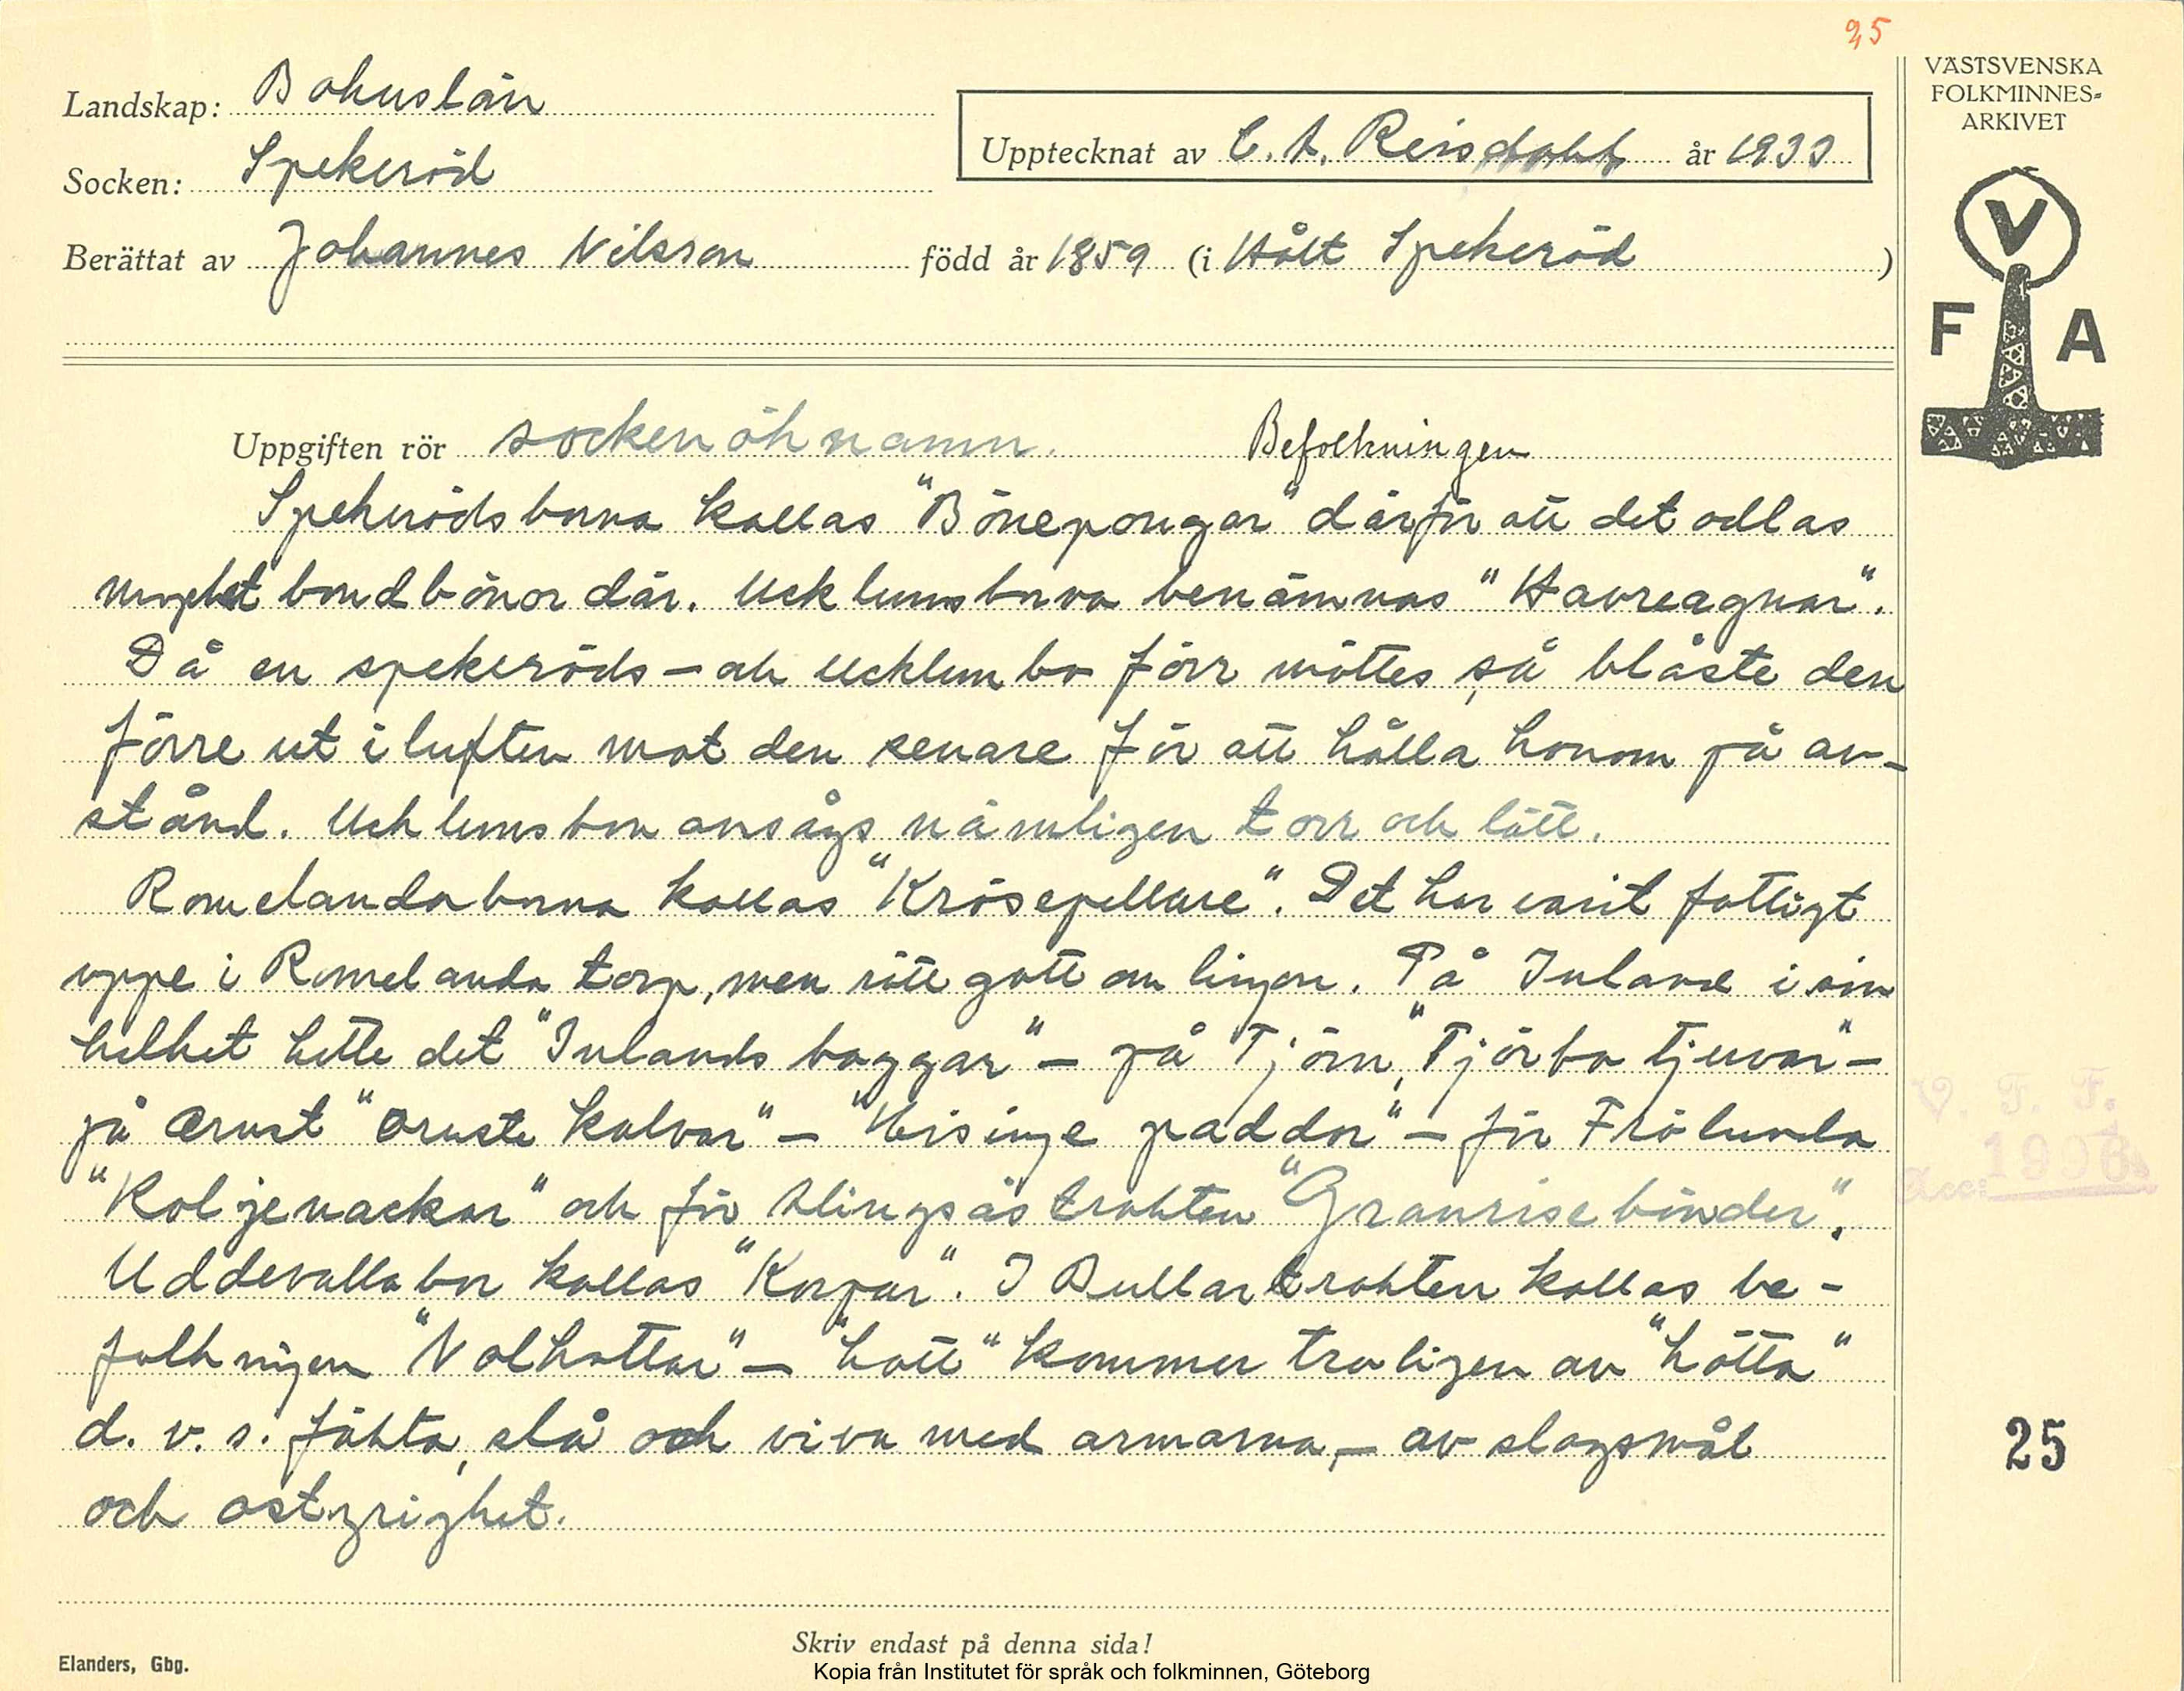 25
VÄSTSVENSKA
FOLKMINNES-
ARKIVET
Landskap: Bohuslän
Upptecknat av C. A. år 1933
Socken: Spekeröd
Berättat av Johannes Nilsson född år 1859 (i Hålt Spekeröd)
V
F A
Uppgiften rör sockenöknamn. Befolkningen
Spekerödsborna kallas "Bönepongar" därför att det odlas
mycket bondbönor där. Ucklumsborna benämnas "Havreagnar".
Då en spekeröds- och Ucklumbo förr möttes, så blåste den
förre ut i luften mot den senare för att hålla honom på av-
stånd. Ucklumsbon ansågs nämligen torr och lätt.
Romelandaborna kallas "Krösepellare". Det har varit fattigt
uppe i Romelanda torp, men rätt gott om lingon. På Inland i sin
helhet hette det "Inlands baggar" – på Tjörn, "Tjörbo tjuvar" –
på Orust "Oruste kalvar" – "Hisinge paddor" – för Frölunda
"Koljenackar" och för Alingsåstrakten "Granrisebönder".
Uddevallabor kallas "Korpar". I Bullartrakten kallas be-
folkningen "Nolhottar" – "hott" kommer troligen av "hötta"
d. v. s. fäkta, slå och viva med armarna, – av slagsmål
och ostyrighet.
V. F. F.
Acc:
25
Skriv endast på denna sida!
Elanders, Gbg.
Kopia från Institutet för språk och folkminnen, Göteborg